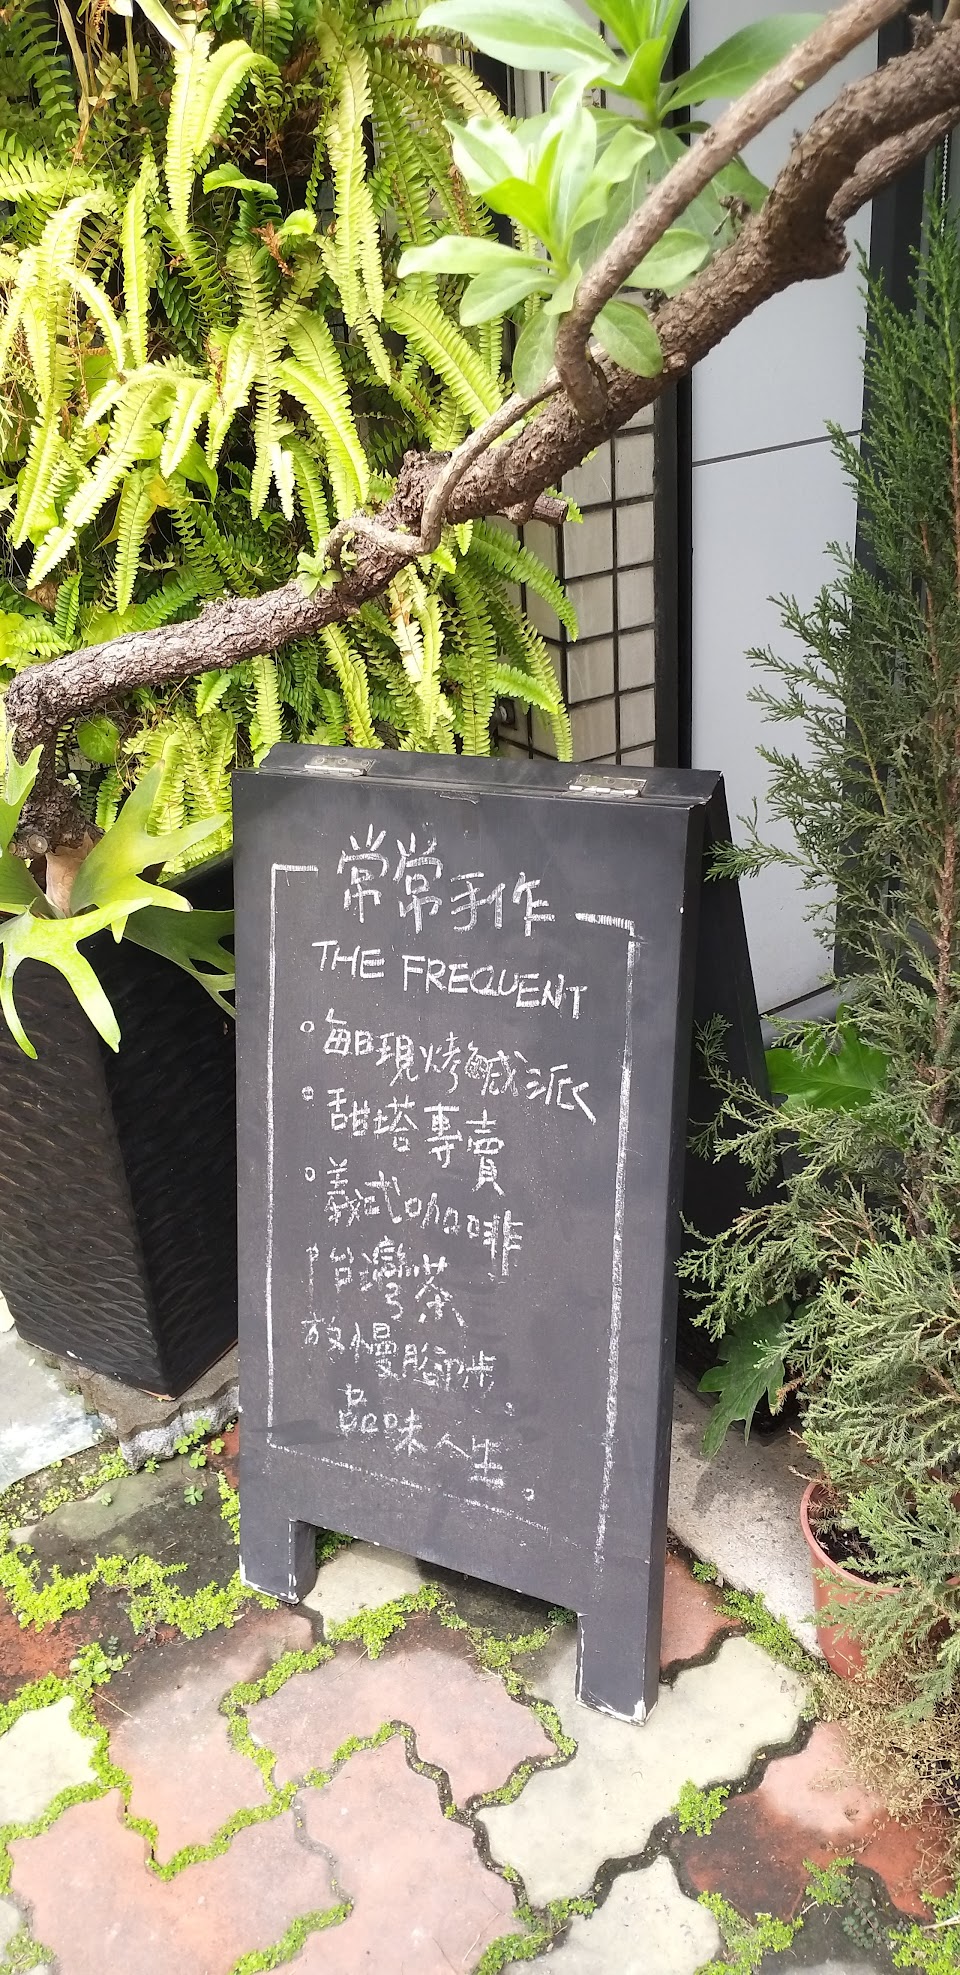 常常手作
THE FREQUENT
。每日現烤鹹派
。甜塔專賣
。義式咖啡
台灣茶
放慢腳步
品味人生。